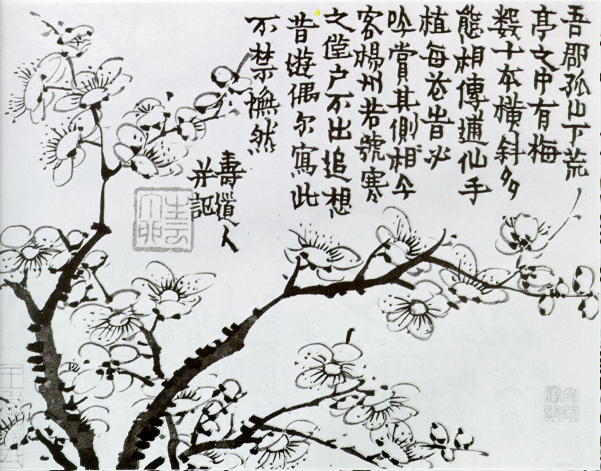 吾郡孤山下荒
亭之中有梅
數十本橫斜多
態相傳逋仙手
植每花旹必
吟賞其側今
客楊州若號寒
之户不出追想
昔遊偶尔寫此
不禁憮然
壽道人
并記